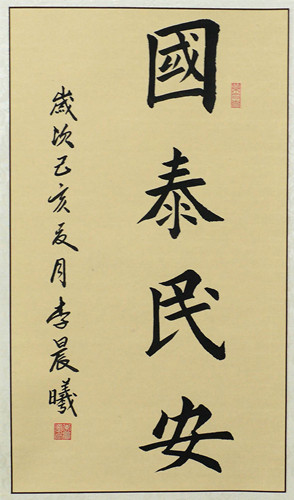 國泰民安
歲次己亥夏月李晨曦